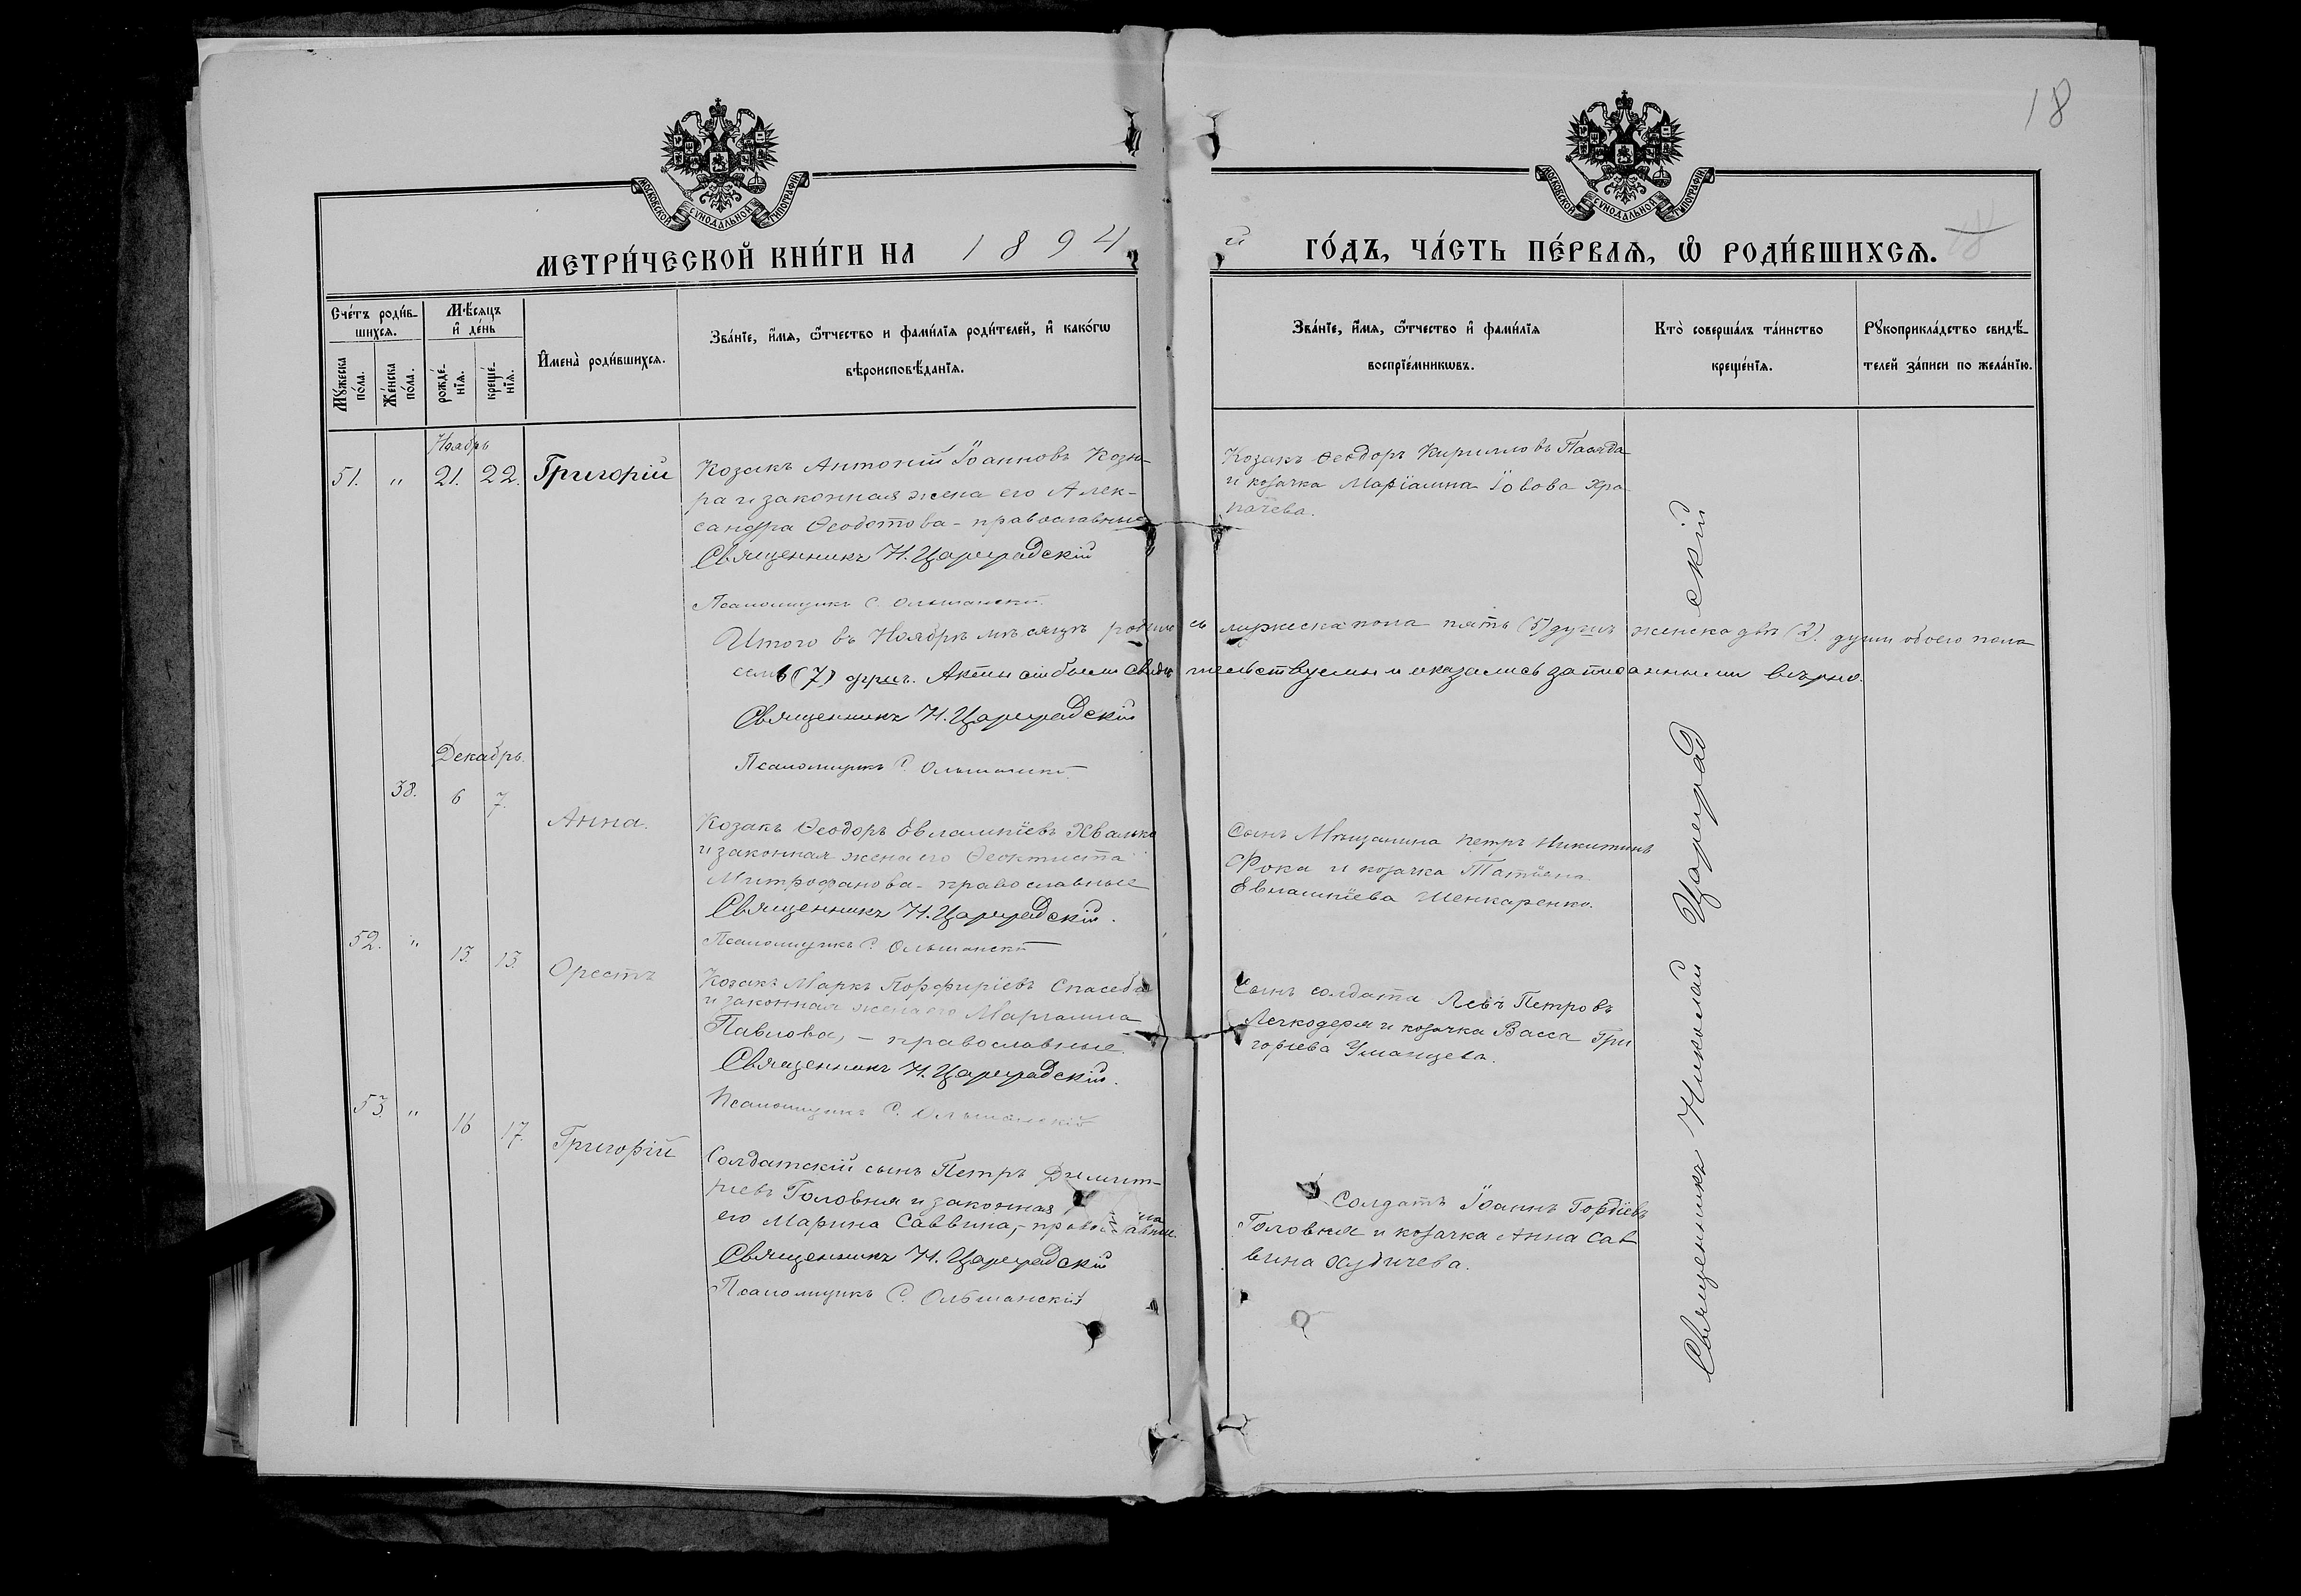 18
МОСКОВСКОЙ СѴНОДАЛЬНОЙ ТИПОГРАФІИ
МОСКОВСКОЙ СѴНОДАЛЬНОЙ ТИПОГРАФІИ
МЕТРИ́ЧЕСКОЙ КНИ́ГИ НА 1894
й ГО́ДЪ, ЧА́СТЬ ПЕ́РВАЯ, Ѡ҆ РОДИ́ВШИХСЯ.
Сче́тъ роди́в-
шихся.
Мꙋ́жеска
по́ла.
Же́нска
по́ла.
Мѣ́сяцъ
и҆ де́нь
рожде́-
нїя.
креще́-
нїя.
И҆мена̀ роди́вшихся.
Зва́нїе, и҆́мя, ѻ҆́тчество и фами́лїя роди́телей, и҆ како́гѡ
вѣроисповѣ́данїя.
Зва́нїе, и҆́мя, ѻ҆́тчество и҆ фами́лїя
воспрїе́мникѡвъ.
Кто̀ соверша́лъ та́инство
креще́нїя.
Рꙋкоприкла́дство свидѣ́-
телей за́писи по жела́нїю.
Ноябрь
51. " 21. 22. Григорій
Козакъ Антоній Іоанновъ Козы-
ра и законная жена его Алек-
сандра Ѳеодотова - православные
Священникъ Н. Цареградскій
Псаломщикъ С. Ольшанскій
Козакъ Ѳеодоръ Кирилловъ
и козачка Маріамна Іовова Хра
пачева.
Итого въ Ноябрѣ мѣсяцѣ родилось мужеска пола пять (5) душъ женска двѣ (2) души обоего пола
семь (7) душъ. Акты сіи были свидѣтельствуемы и оказались записанными вѣрно.
Священникъ Н. Цареградскій
Псаломщикъ С. Ольшанскій
Декабрь.
38. 6 7. Анна.
Козакъ Ѳеодоръ Евлампіевъ
и законная жена его Ѳеоктиста
Митрофанова - православные
Священникъ Н. Цареградскій.
Псаломщикъ С. Ольшанскій
Сынъ Мѣщанина Петръ Никитинъ
Фока и козачка Татіана
Евлампіева Шенкаренко.
52. " 13. 13. Орестъ
Козакъ Маркъ Порфиріевъ
и законная жена его
Павлова, - православные.
Священникъ Н. Цареградскій.
Псаломщикъ С. Ольшанскій
Сынъ солдата Левъ Петровъ
Легкодеря и козачка Васса Гри
горьева Уманцева.
53. " 16 17. Григорій
Солдатскій сынъ Петръ Димит-
ріевъ Головня и законная
его Марина Саввина, -
Священникъ Н. Цареградскій
Псаломщикъ С. Ольшанскій
Солдатъ Іоаннъ Гордіевъ
Головня и козачка Анна Сав
вина
Священникъ Николай Цареградскій